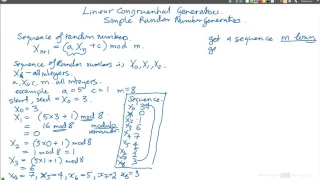 Linear Congruential Generators.
Simple Random Number Generators.
Sequence of random numbers.
Xn+1 = (a Xn + c) mod m.
get a sequence m long
ge
Sequence of Random numbers is X0, X1, X2.
Xs - all integers.
a, X0, c, m all integers.
example a=5 c=1 m=8
start, seed = X0 = 3.
X0 = 3.
X1 = (5×3 + 1) mod 8
= 16 mod 8
modulo
= 0
X2 = (5×0 + 1) mod 8
= 1 mod 8 = 1
X3 = (5×1 + 1) mod 8
= 6
X4 = 7, X5 = 4, X6 = 5, X7 = 2 X8 = 3
Sequence
0
1
6
7
4
5
2
3